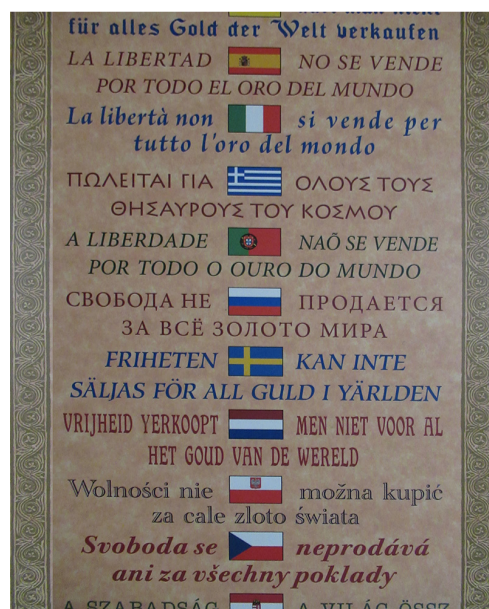 für alles Gold der Welt verkaufen
LA LIBERTAD NO SE VENDE
POR TODO EL ORO DEL MUNDO
La libertà non si vende per
tutto l'oro del mondo
ΠΩΛΕΙΤΑΙ ΓΙΑ ΟΛΟΥΣ ΤΟΥΣ
ΘΗΣΑΥΡΟΥΣ ΤΟΥ ΚΟΣΜΟΥ
A LIBERDADE NAÕ SE VENDE
POR TODO O OURO DO MUNDO
СВОБОДА НЕ ПРОДАЕТСЯ
ЗА ВСЁ ЗОЛОТО МИРА
FRIHETEN KAN INTE
SÄLJAS FÖR ALL GULD I YÄRLDEN
VRIJHEID YERKOOPT MEN NIET VOOR AL
HET GOUD VAN DE WERELD
Wolności nie można kupić
za cale zloto świata
Svoboda se neprodává
ani za všechny poklady
A SZABADSÁG A VILÁG ÖSSZ